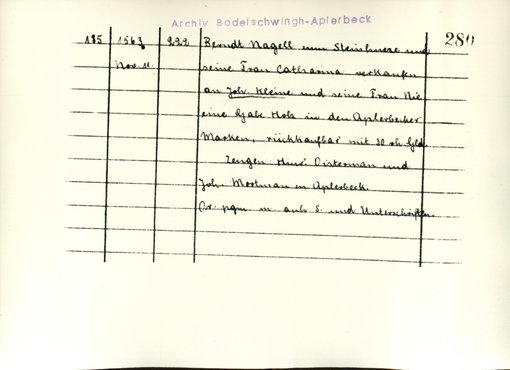 Archiv Bodelschwingh-Aplerbeck
185 1563 222 Berndt Nagell zum Steinhueze und 280
Nov. 11. seine Frau Catharina verkaufen
an Joh. Kleine und seine Frau Nie
eine Gabe Holz in den Aplerbecker
Marken, rückkaufbar mit 30 rh. Gld.
Zeugen: Hinr. Oisterman und
Joh. Mortman in Aplerbeck.
Or. pgm. m. anh. S. und Unterschriften.